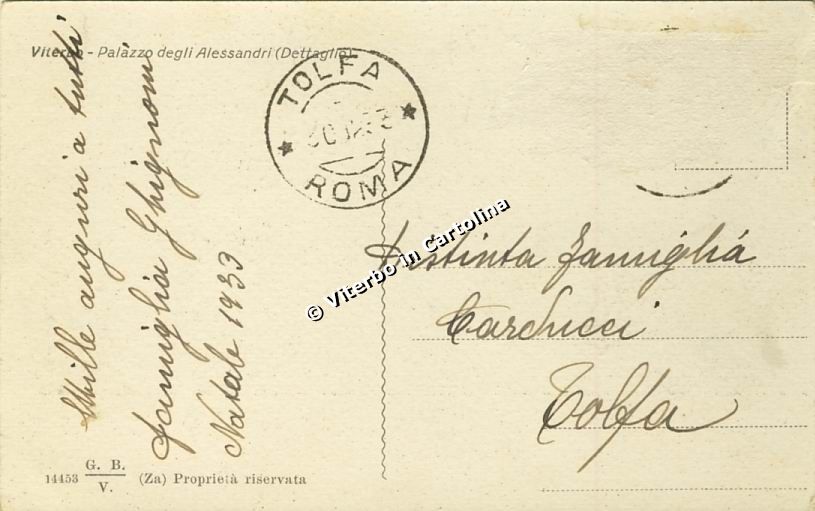 Viterbo - Palazzo degli Alessandri (Dettaglio)
Mille auguri a tutti
famiglia Ghignoni
Natale 1933
TOLFA
ROMA
© Viterbo in Cartolina
Distinta famiglia
Carducci
Tolfa
14453 G. B. V. (Za) Proprietà riservata